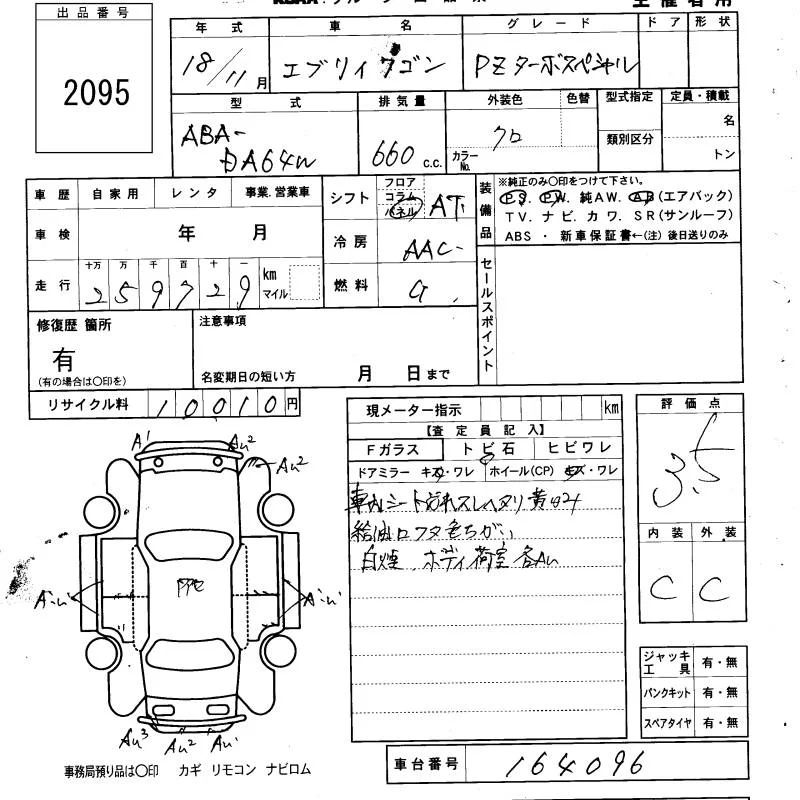 出品番号
2095
年 式 車 名 グレード ドア 形状
18/11月 エブリィワゴン PZターボスペシャル
型 式 排気量 外装色 色替 型式指定 定員・積載
ABA-
DA64W 660 c.c. クロ
カラーNo. 類別区分 名
トン
車歴 自家用 レンタ 事業.営業車
車検 年 月
走行 十万 万 千 百 十 一
259729 km
マイル
シフト フロア コラム パネル AT
冷房 AAC
燃料 G
装備品 ※純正のみ○印をつけて下さい。
P.S. P.W. 純AW. AB(エアバック)
TV. ナビ. カワ. SR(サンルーフ)
ABS ・ 新車保証書←(注) 後日送りのみ
セールスポイント
修復歴 箇所
有
(有の場合は○印を)
注意事項
名変期日の短い方 月 日まで
リサイクル料 10010円
現メーター指示 km
【査定員記入】
Fガラス トビ石 ヒビワレ
ドアミラー キズ・ワレ ホイール(CP) キズ・ワレ
車内シート汚れスレヘタリ
給油口フタ色ちがい
白煙 ボディ荷室各AU
評価点
3.5
内装 外装
C C
A1 AU2
AU2
AU3 AU2 AU1
ジャッキ
工具 有・無
パンクキット 有・無
スペアタイヤ 有・無
事務局預り品は○印 カギ リモコン ナビロム
車台番号 164096